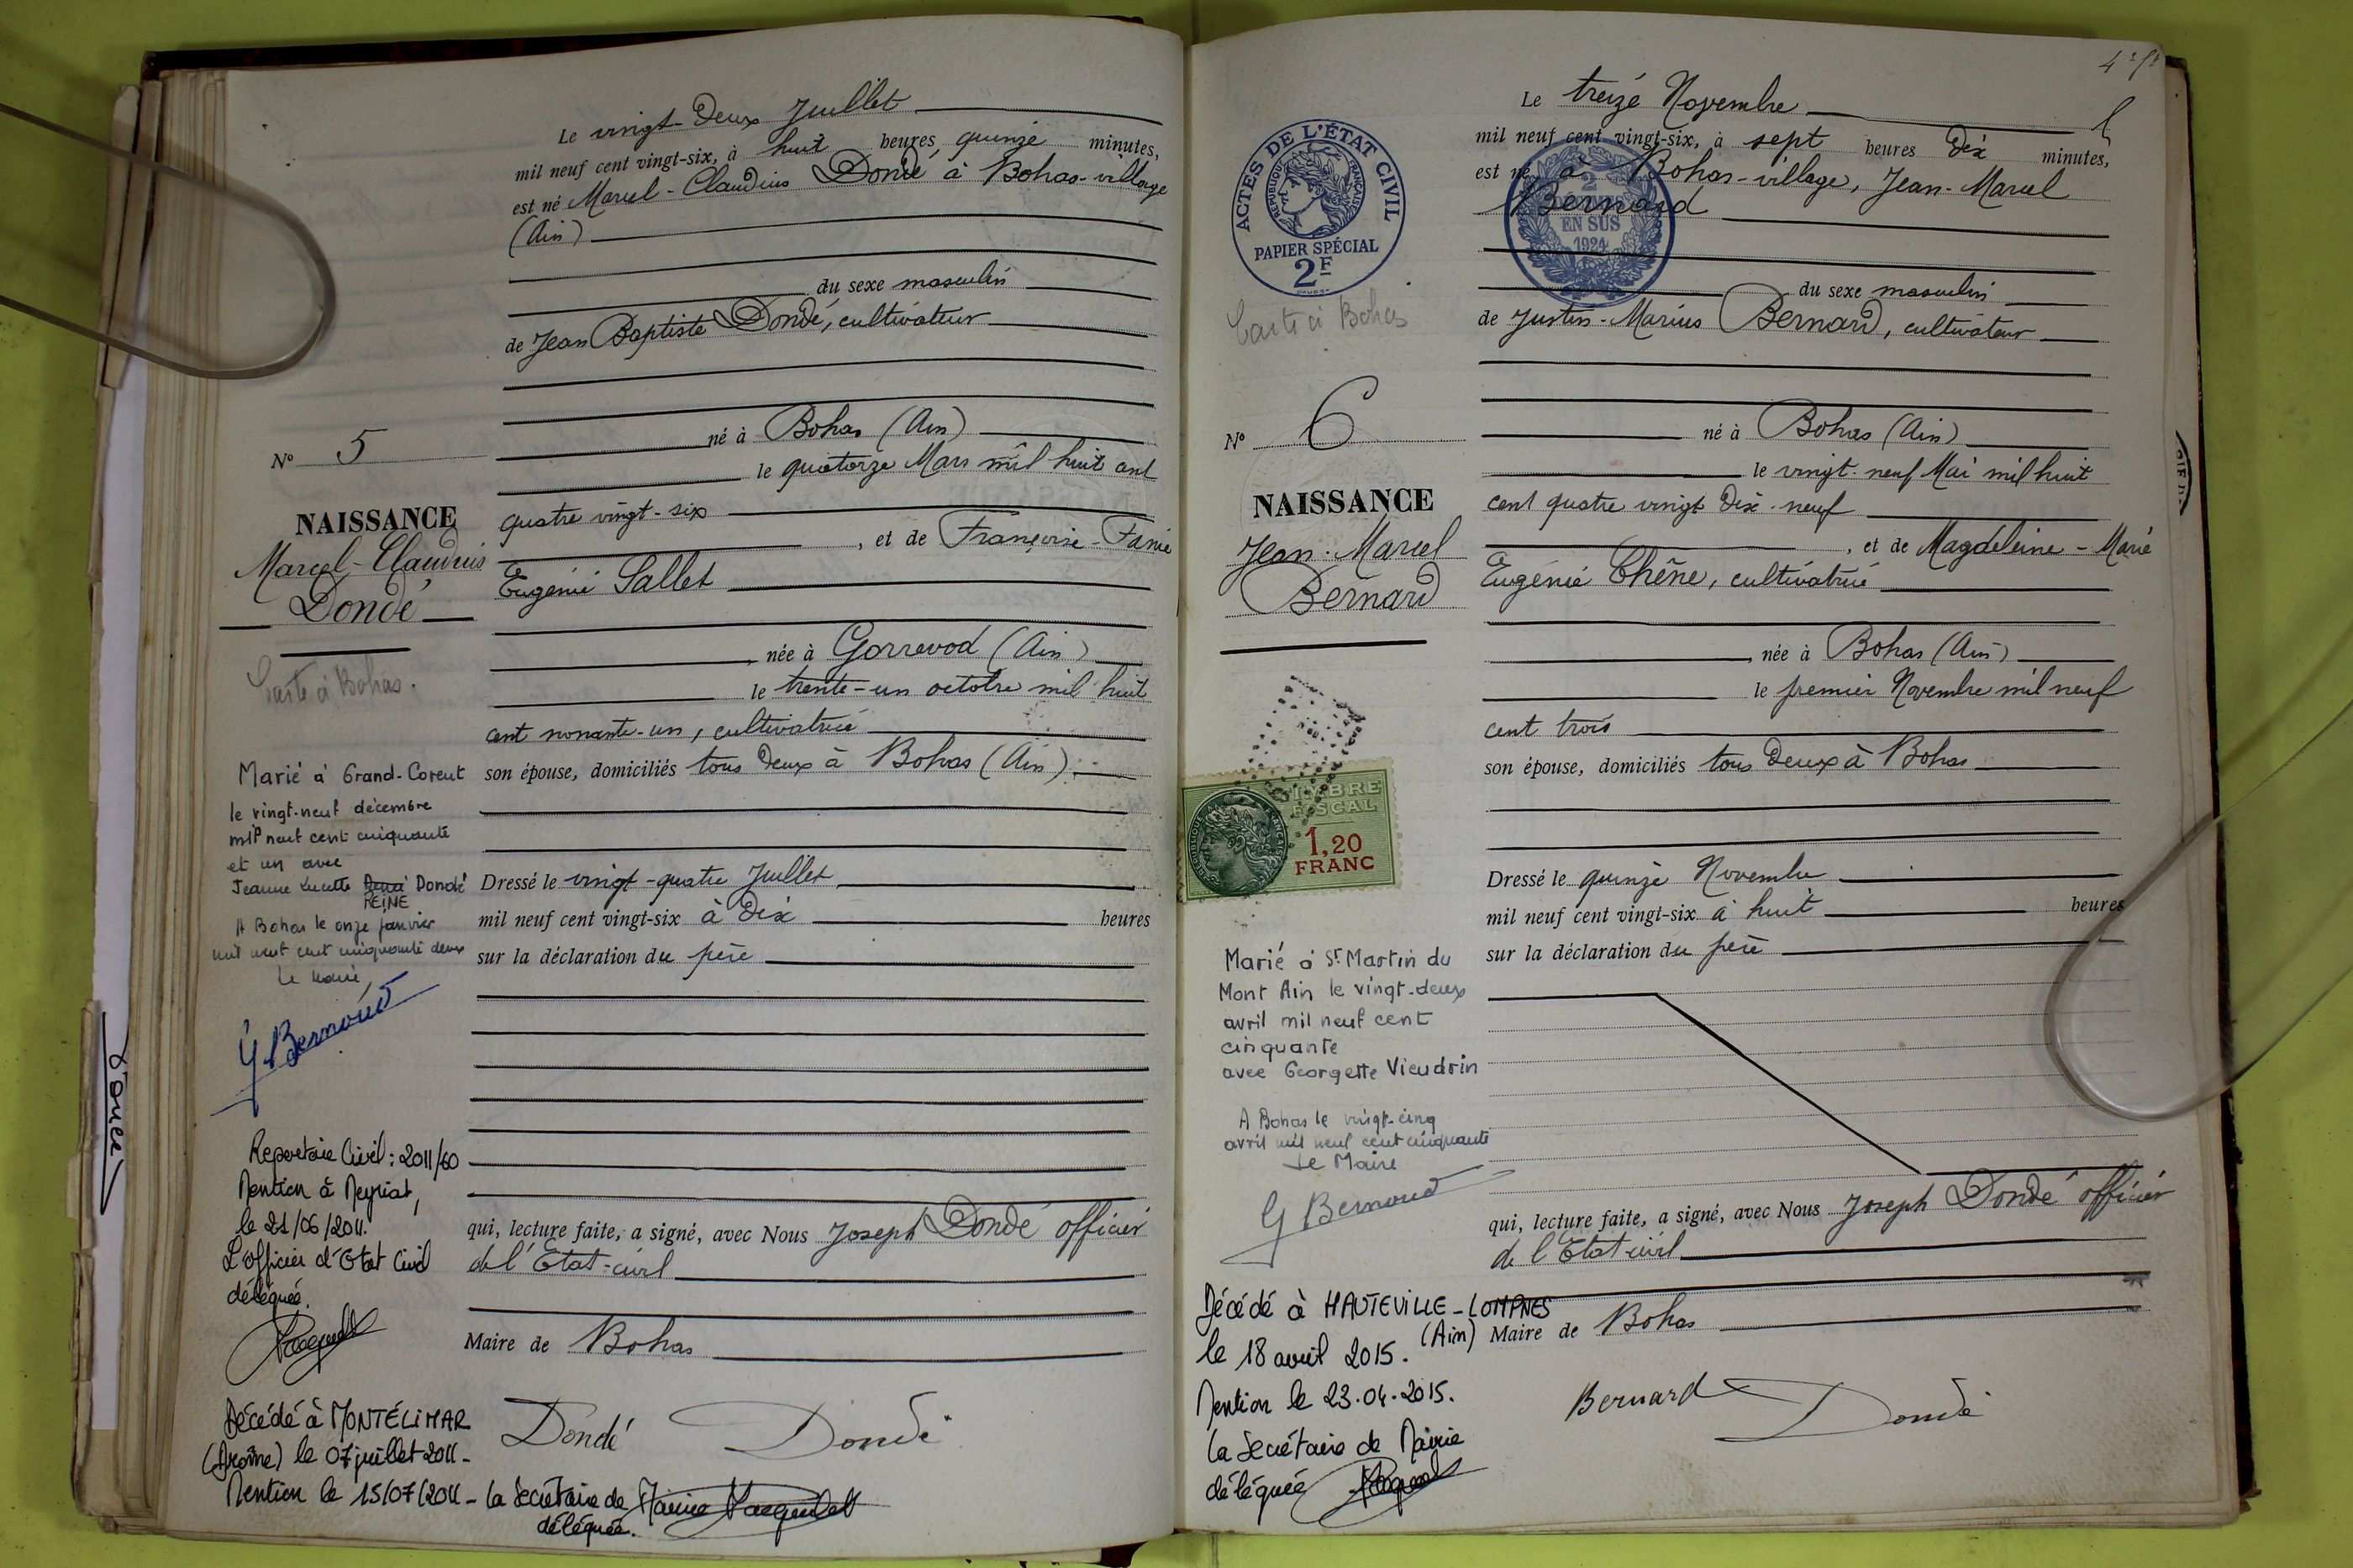 Le vingt-Deux Juillet
mil neuf cent vingt-six, à huit heures, quinze minutes,
est né Marcel-Claudius Dondé à Bohas-village
(Ain)
du sexe masculin
de Jean Baptiste Dondé, cultivateur
né à Bohas (Ain)
le quatorze Mars mil huit cent
quatre vingt-six
, et de Françoise-Fanie
Eugénie Sallet
née à Gorrevod (Ain)
le trente-un octobre mil huit
cent nonante-un, cultivatrice
son épouse, domiciliés tous Deux à Bohas (Ain).
Dressé le vingt-quatre Juillet
mil neuf cent vingt-six à Dix heures
sur la déclaration du père
qui, lecture faite, a signé, avec Nous Joseph Dondé officier
de l'Etat-civil
Maire de Bohas
Dondé Dondé
N° 5
NAISSANCE
Marcel-Claudius
Dondé
Carte à Bohas.
Marié à Grand-Corent
le vingt-neuf décembre
mil neuf cent cinquante
et un avec
Jeanne Lucette Dondé
REINE
A Bohas le onze janvier
mil neuf cent cinquante deux
Le Maire,
G Bernoud
Repertoire Civil : 2011/60
Mention à Meyriat,
le 21/06/2011.
L'officier d'Etat Civil
déléguée.
Décédé à MONTÉLIMAR
(Drôme) le 07 juillet 2011-
Mention le 15/07/2011 - La Secrétaire de Mairie
déléguée.
Le treize Novembre
mil neuf cent vingt-six, à sept heures Dix minutes,
est né, à Bohas-village, Jean-Marcel
Bernard
du sexe masculin
de Justin-Marius Bernard, cultivateur
né à Bohas (Ain)
le vingt-neuf Mai mil huit
cent quatre vingt Dix-neuf
, et de Magdeleine-Marie
Eugénie Chêne, cultivatrice
née à Bohas (Ain)
le premier Novembre mil neuf
cent trois
son épouse, domiciliés tous Deux à Bohas
Dressé le quinze Novembre
mil neuf cent vingt-six à huit heures
sur la déclaration du père
qui, lecture faite, a signé, avec Nous Joseph Dondé officier
de l'Etat-civil
Maire de Bohas
Bernard Dondé
ACTES DE L'ÉTAT CIVIL
RÉPUBLIQUE FRANÇAISE
PAPIER SPÉCIAL
2F
2
EN SUS
1924
Carte à Bohas
N° 6
NAISSANCE
Jean-Marcel
Bernard
TIMBRE
FISCAL
1,20
FRANC
Marié à St Martin du
Mont Ain le vingt-deux
avril mil neuf cent
cinquante
avec Georgette Vieudrin
A Bohas le vingt-cinq
avril mil neuf cent cinquante
Le Maire
G Bernoud
Décédé à HAUTEVILLE-LOMPNES
(Ain)
le 18 avril 2015.
Mention le 23.04.2015.
La Secrétaire de Mairie
déléguée